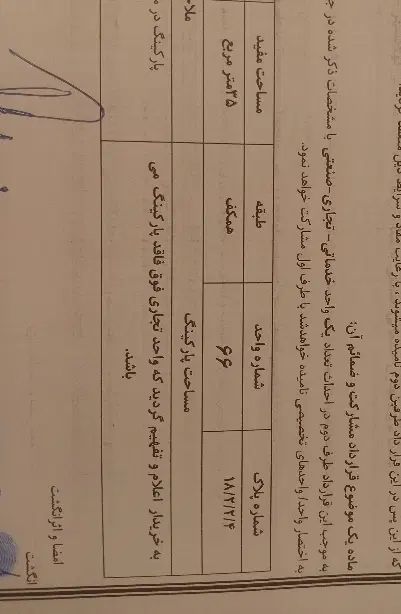 که از این پس در این قرار داد طرفین دوم نامیده میشوند ، با رعایت مفاد و شرایط ذیل منعقد گردید.
ماده یک موضوع قرارداد مشارکت و ضمائم آن:
به موجب این قرارداد طرف دوم در احداث تعداد یک واحد خدماتی - تجاری - صنعتی با مشخصات ذکر شده در
به اختصار واحد/ واحدهای تخصیصی نامیده خواهد شد با طرف اول مشارکت خواهد نمود.
شماره پلاک شماره واحد طبقه مساحت مفید
۱۸/۲/۲/۴ ۶۶ همکف ۳۵ متر مربع
مساحت پارکینگ
به خریدار اعلام و تفهیم گردید که واحد تجاری فوق فاقد پارکینگ می باشد.
پارکینگ در
امضا و اثر انگشت
انگشت